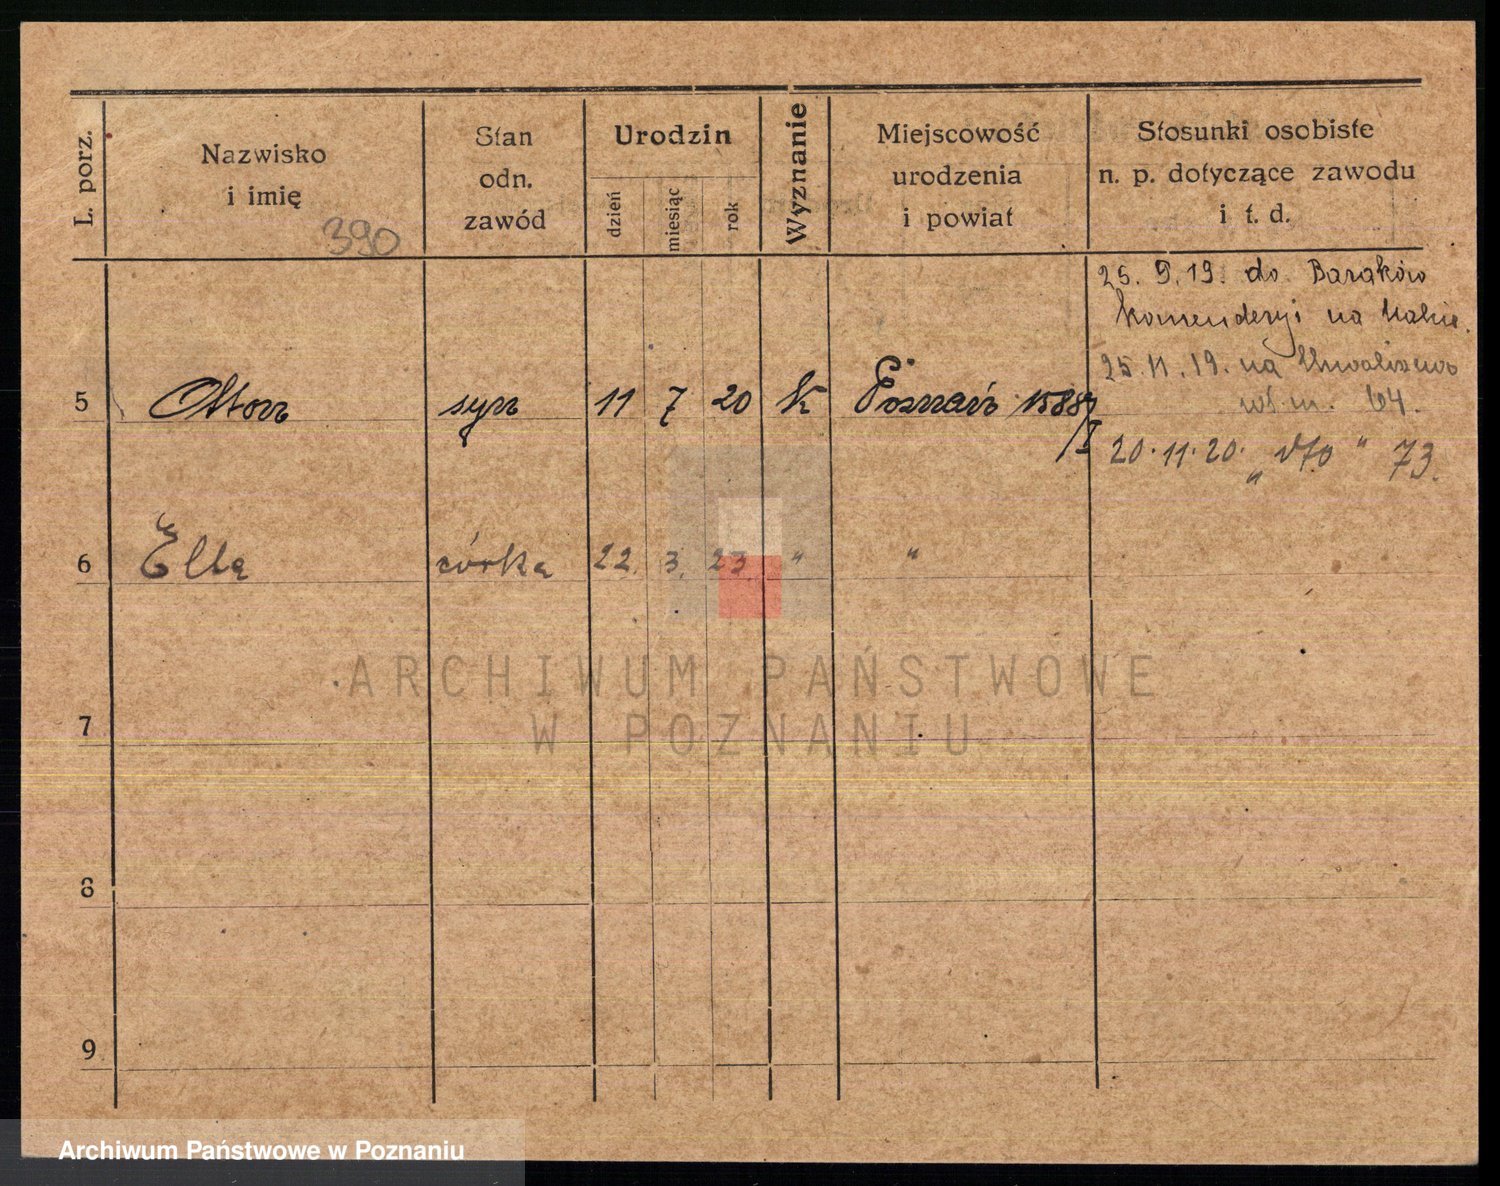 L. porz.
Nazwisko
i imię
Stan
odn.
zawód
Urodzin
dzień
miesiąc
rok
Wyznanie
Miejscowość
urodzenia
i powiat
Stosunki osobiste
n. p. dotyczące zawodu
i t. d.
390
25. 9. 19. do Baraków
na
25. 11. 19. na
64.
5 syn 11 7 20 k Poznań
/I
20. 11. 20. " dto " 73.
6 córka 22. 3. 23. " "
7
8
9
ARCHIWUM PAŃSTWOWE
W POZNANIU
Archiwum Państwowe w Poznaniu